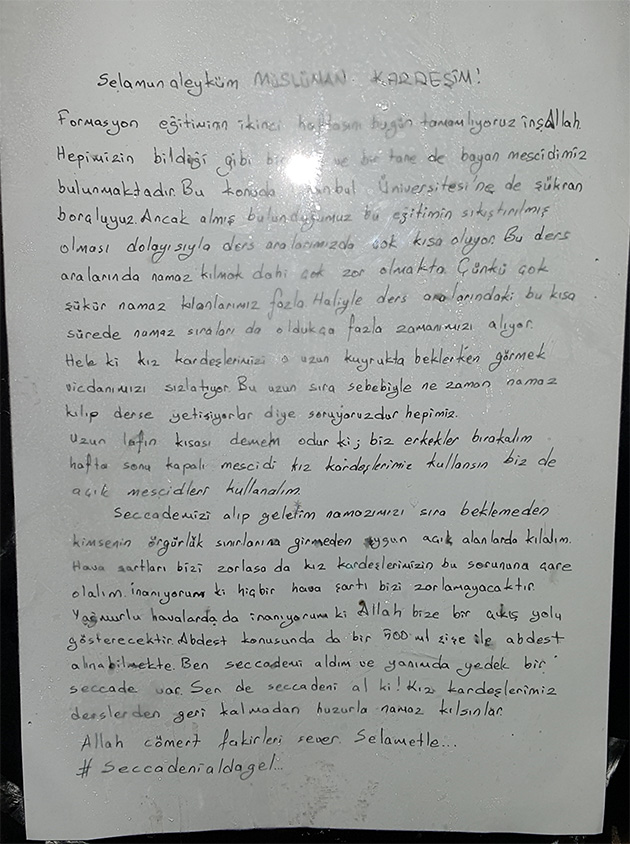 Selamun aleyküm MÜSLÜMAN KARDEŞİM!
Formasyon eğitiminin ikinci haftasını bugün tamamlıyoruz inşAllah.
Hepimizin bildiği gibi bir ve bir tane de bayan mescidimiz
bulunmaktadır. Bu konuda Üniversitesi'ne de şükran
borçluyuz. Ancak almış bulunduğumuz bu eğitimin sıkıştırılmış
olması dolayısıyla ders aralarımızda çok kısa oluyor. Bu ders
aralarında namaz kılmak dahi çok zor olmakta. Çünkü çok
şükür namaz kılanlarımız fazla. Haliyle ders aralarındaki bu kısa
sürede namaz sıraları da oldukça fazla zamanımızı alıyor.
Hele ki kız kardeşlerimizi o uzun kuyrukta beklerken görmek
vicdanımızı sızlatıyor. Bu uzun sıra sebebiyle ne zaman namaz
kılıp derse yetişiyorlar diye soruyoruzdur hepimiz.
Uzun lafın kısası demem odur ki; biz erkekler bırakalım
hafta sonu kapalı mescidi kız kardeşlerimiz kullansın biz de
açık mescidleri kullanalım.
Seccademizi alıp gelelim namazımızı sıra beklemeden
kimsenin özgürlük sınırlarına girmeden uygun açık alanlarda kılalım.
Hava şartları bizi zorlasa da kız kardeşlerimizin bu sorununa çare
olalım. inanıyorum ki hiçbir hava şartı bizi zorlamayacaktır.
Yağmurlu havalarda da inanıyorum ki Allah bize bir çıkış yolu
gösterecektir. Abdest konusunda da bir 500 ml şişe ile abdest
alınabilmekte. Ben seccademi aldım ve yanımda yedek bir
seccade var. Sen de seccadeni al ki! Kız kardeşlerimiz
derslerden geri kalmadan huzurla namaz kılsınlar.
Allah cömert fakirleri sever. Selametle...
# Seccadenialdagel...